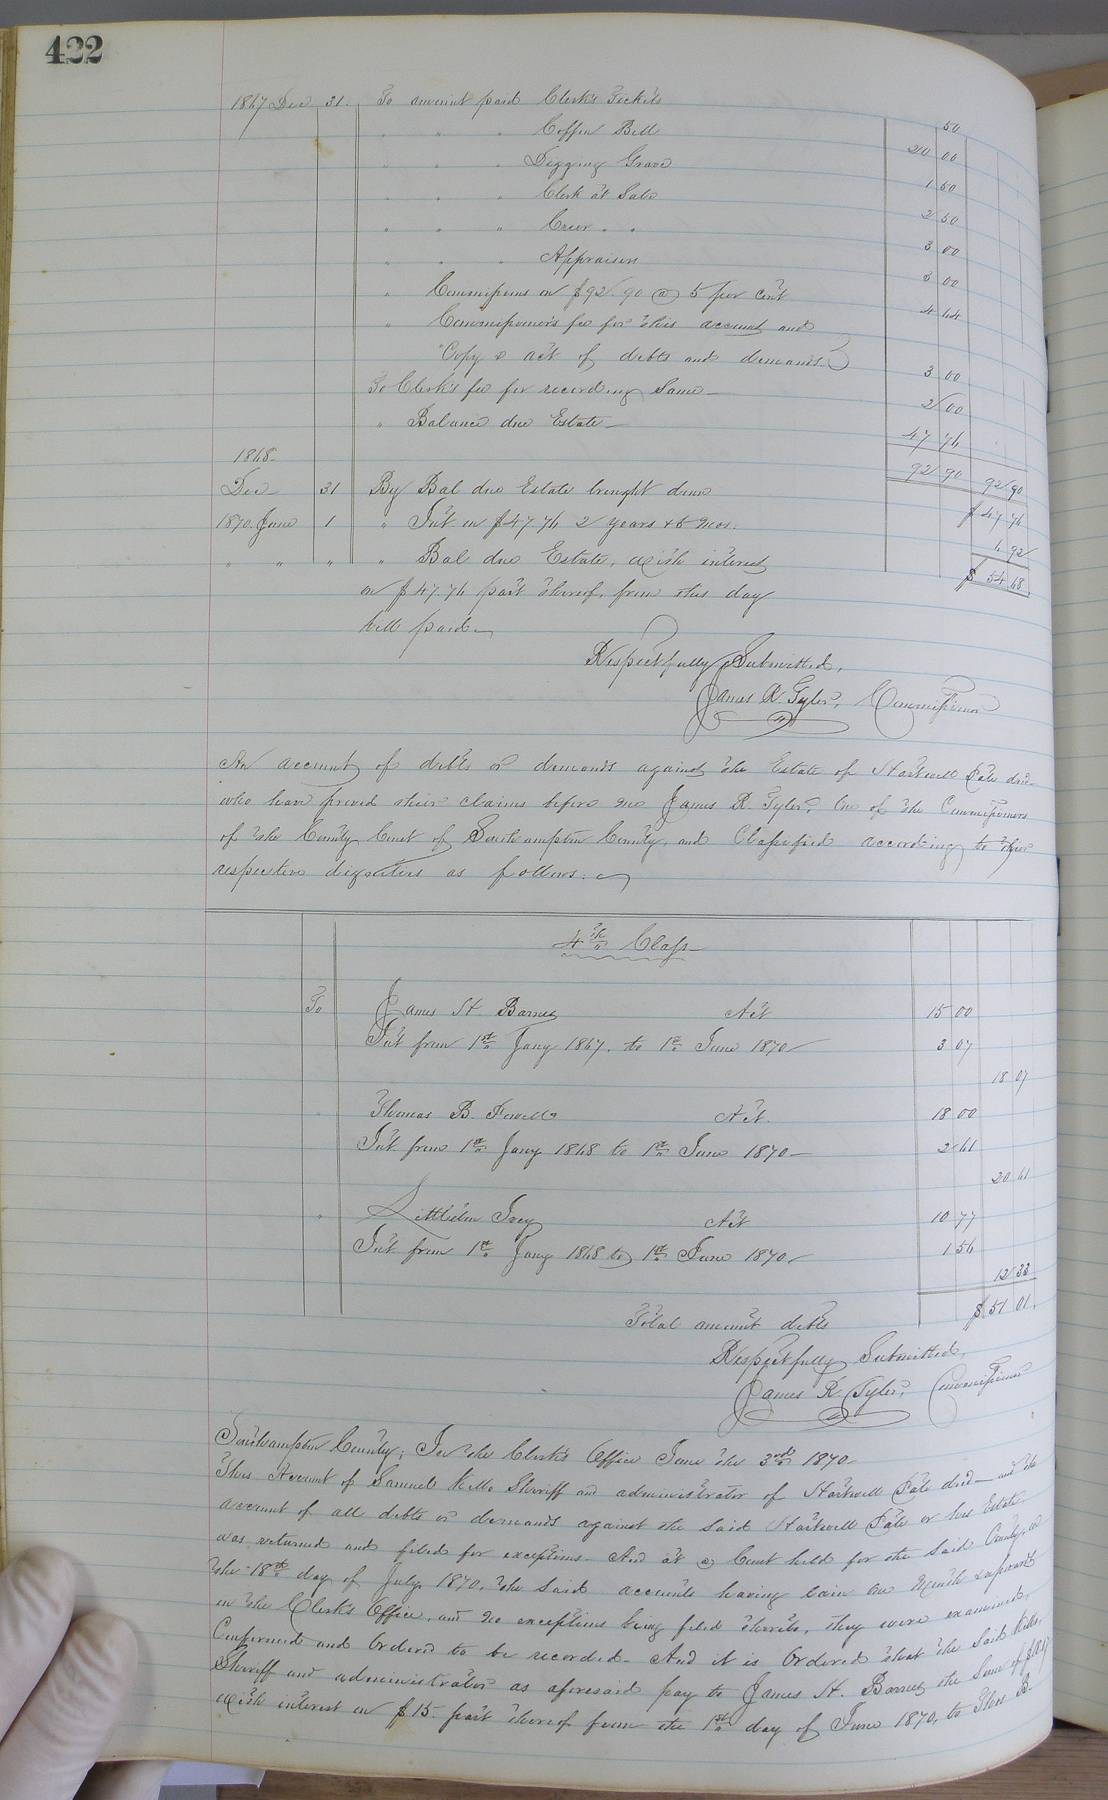 422
1867 Dec 31. To amount paid Clerk's Tickets 50
" " " Coffin Bill 20 00
" " " Digging Grave 1 50
" " " Clerk at Sale 2 50
" " " Crier " " 3 00
" " " Appraisers 3 00
" Commissions on $92.90 @ 5 per cent 4 64
" Commissioner's fee for this account and
Copy & act of debts and demands 3 00
To Clerk's fee for recording Same 2 00
" Balance due Estate 47 76
92 90 92 90
1868
Dec 31 By Bal due Estate brought down $47 76
1870 June 1 " Int on $47.76 2 years & 5 mos. 6 92
" " " " Bal due Estate, with interest $54 68
on $47.76 part thereof, from this day
till paid
Respectfully Submitted,
James R. Tyler, Commissioner
An account of debts or demands against the Estate of Hartwell Pate decd
who have proved their claims before me James R. Tyler, One of the Commissioners
of the County Court of Southampton County, and Classified according to their
respective dignities as follows.
4th Class
To James H. Barnes Act 15 00
Int from 1st Jany 1867. to 1st June 1870 3 07
18 07
Thomas B. Act 18 00
Int from 1st Jany 1868 to 1st June 1870 2 61
20 61
" Ivey Act 10 77
Int from 1st Jany 1868 to 1st June 1870 1 56
12 33
Total amount debts $51 01.
Respectfully Submitted,
James R. Tyler, Commissioner
Southampton County; In the Clerk's Office June the 3rd 1870
This Account of Samuel Kello Sheriff and administrator of Hartwell Pate decd and the
account of all debts or demands against the said Hartwell Pate or his Estate
was returned and filed for exceptions. And at a Court held for the said County, on
the 18th day of July 1870, the said accounts having lain one Month
in the Clerk's Office, and no exceptions being filed thereto, they were examined,
Confirmed and Ordered to be recorded. And it is Ordered that the said Kello,
Sheriff and administrator as aforesaid pay to James H. Barnes the Sum of $18.07
with interest on $15. part thereof from the 1st day of June 1870, to Thos B.